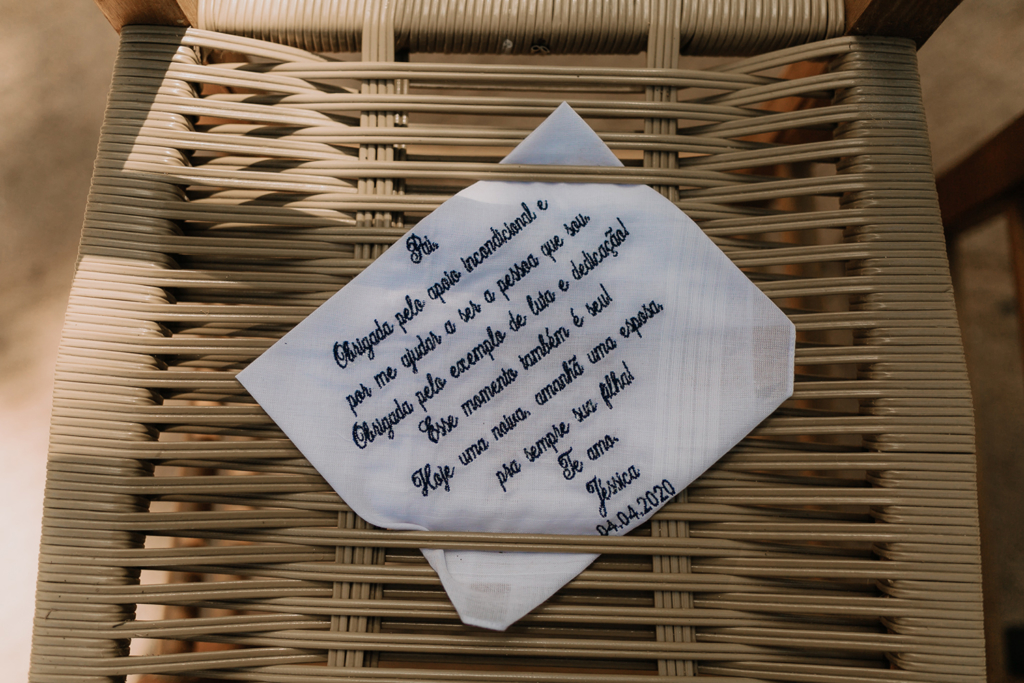 Pai,
Obrigada pelo apoio incondicional e
por me ajudar a ser a pessoa que sou.
Obrigada pelo exemplo de luta e dedicação!
Esse momento também é seu!
Hoje uma noiva, amanhã uma esposa,
pra sempre sua filha!
Te amo.
Jéssica
04.04.2020